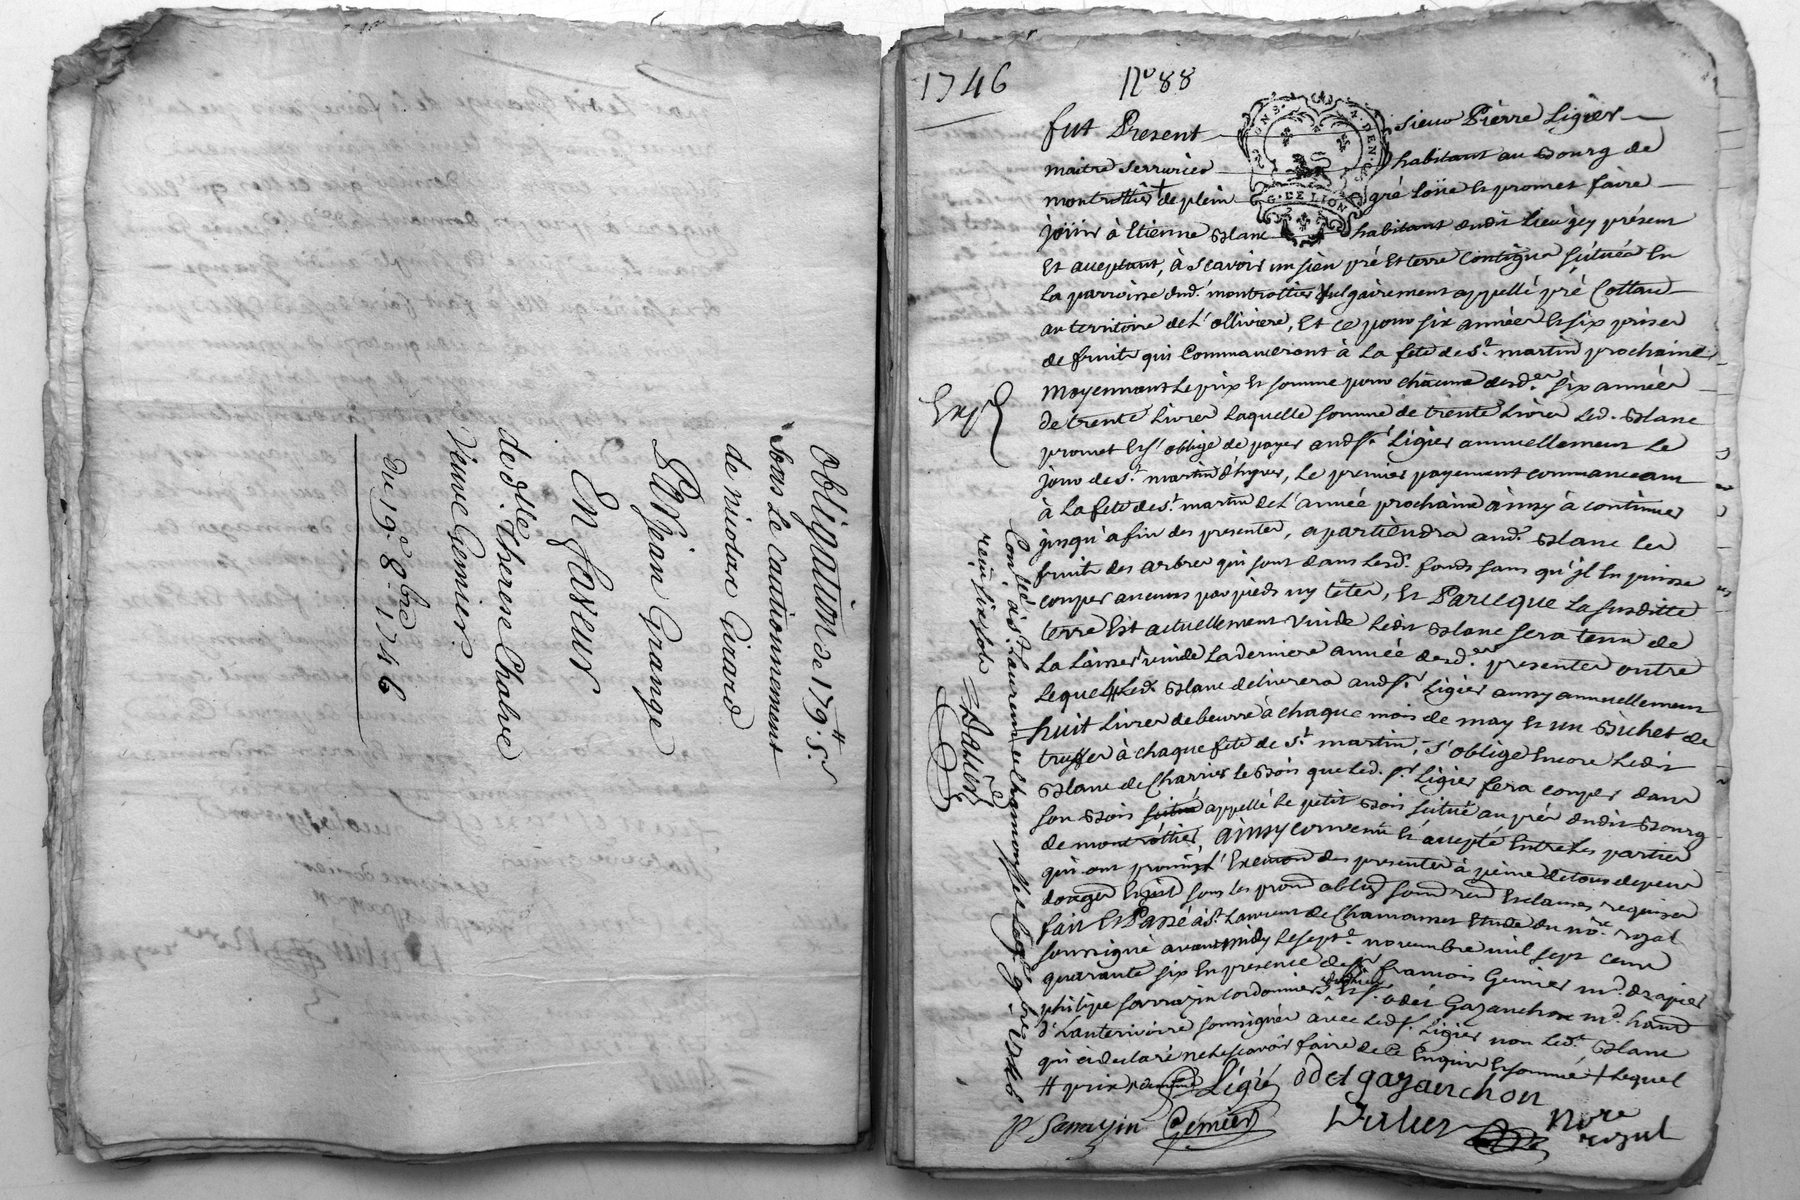 Obligation de 179.tt 5.s
sous Le cautionnement
de nicolas Girard
Par Jean Grange
En faveur
de dlle. Therese Chatre
Veuve Gernier
Du 19.e 8.bre 1746
1746
No 88
fut Present sieur Pierre Ligier
maitre serrurier habitant au Bourg de
montrottier de plein gré Loüe et promet faire
joüir à Etienne Blanc habitant dudit Lieu jcy présent
Et acceptant, à Scavoir un sien pré Et terre Contigue Scituée En
La parroisse dud. montrottier vulgairement appellé pré Collaud
au territoire de L'olliviere, Et ce pour six années Et six prises
de fruits qui Commanceront à La fete de st. martin prochaine
Moyennant Le prix Et somme pour chacune desd. six années
de trente Livres Laquelle somme de trente Livres Led. Blanc
promet Et s'oblige de payer aud sr. Ligier annuellement Le
jour de st. martin d'hyver, Le premier payement commanceant
à La fete de st. martin de L'année prochaine ainsy à continuer
jusqu'a fin des presentes, apartiendra aud. Blanc Les
fruits des arbres qui sont dans Lesd. fonds sans qu'jl En puisse
couper aucuns par pieds ny tetes, Et Parce que La susditte
terre Est actuellement vuide Ledit Blanc sera tenu de
La Laisser vuide La derniere année desd. presentes outre
Leque Led. Blanc delivrera aud sr. Ligier aussy annuellement
huit Livres de beurre à chaque mois de may Et un Bichet de
truffes à chaque fete de st. martin, s'oblige Encore Ledit
Blanc de Charrier Le Bois que Led. sr. Ligier fera couper dans
son Bois appellé Le petit Bois scitué auprès dudit Bourg
de montrottier, ainsy convenu Et accepté Entre Les parties
qui ont promis L'Execution des presentes à peine de tous depens
fait Et Passé à st. Laurent de Chamousset Etude du nore. royal
soussigné avant midy Le sept.e novembre mil sept cens
quarante six En presence de sr. francois Gernier md. drapier
philipe sarrazin cordonnier Et sr. odet Gazanchon md.
soussignés avec Led sr. Ligier non Led. Blanc
qui a declaré ne Le scavoir faire de Ce Enquis Et sommé Lequel
Ligié odet gazanchon
P Sarrazin Gernier
Nore
royal
Exp
Conllé à st. Laurent de chamousset Le 9bre 1746
reçu six sols